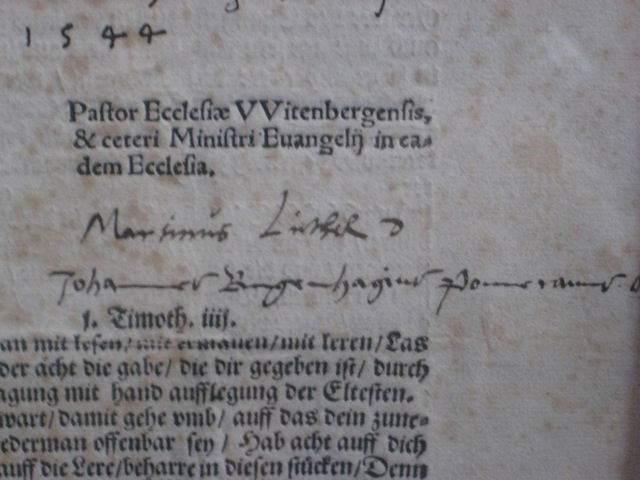 1544
Pastor Ecclesiæ VVitenbergensis,
& ceteri Ministri Euangelij in ea⸗
dem Ecclesia.
Martinus Luther D
Johannes Bugenhagius Pomeranus D
1. Timoth. iiij.
an mit lesen/mit ermanen/mit leren/Las
der acht die gabe/die dir gegeben ist/durch
agung mit hand aufflegung der Eltesten.
wart/damit gehe vmb/auff das dein zune⸗
ederman offenbar sey/Hab acht auff dich
auff die Lere/beharre in diesen stücken/Denn